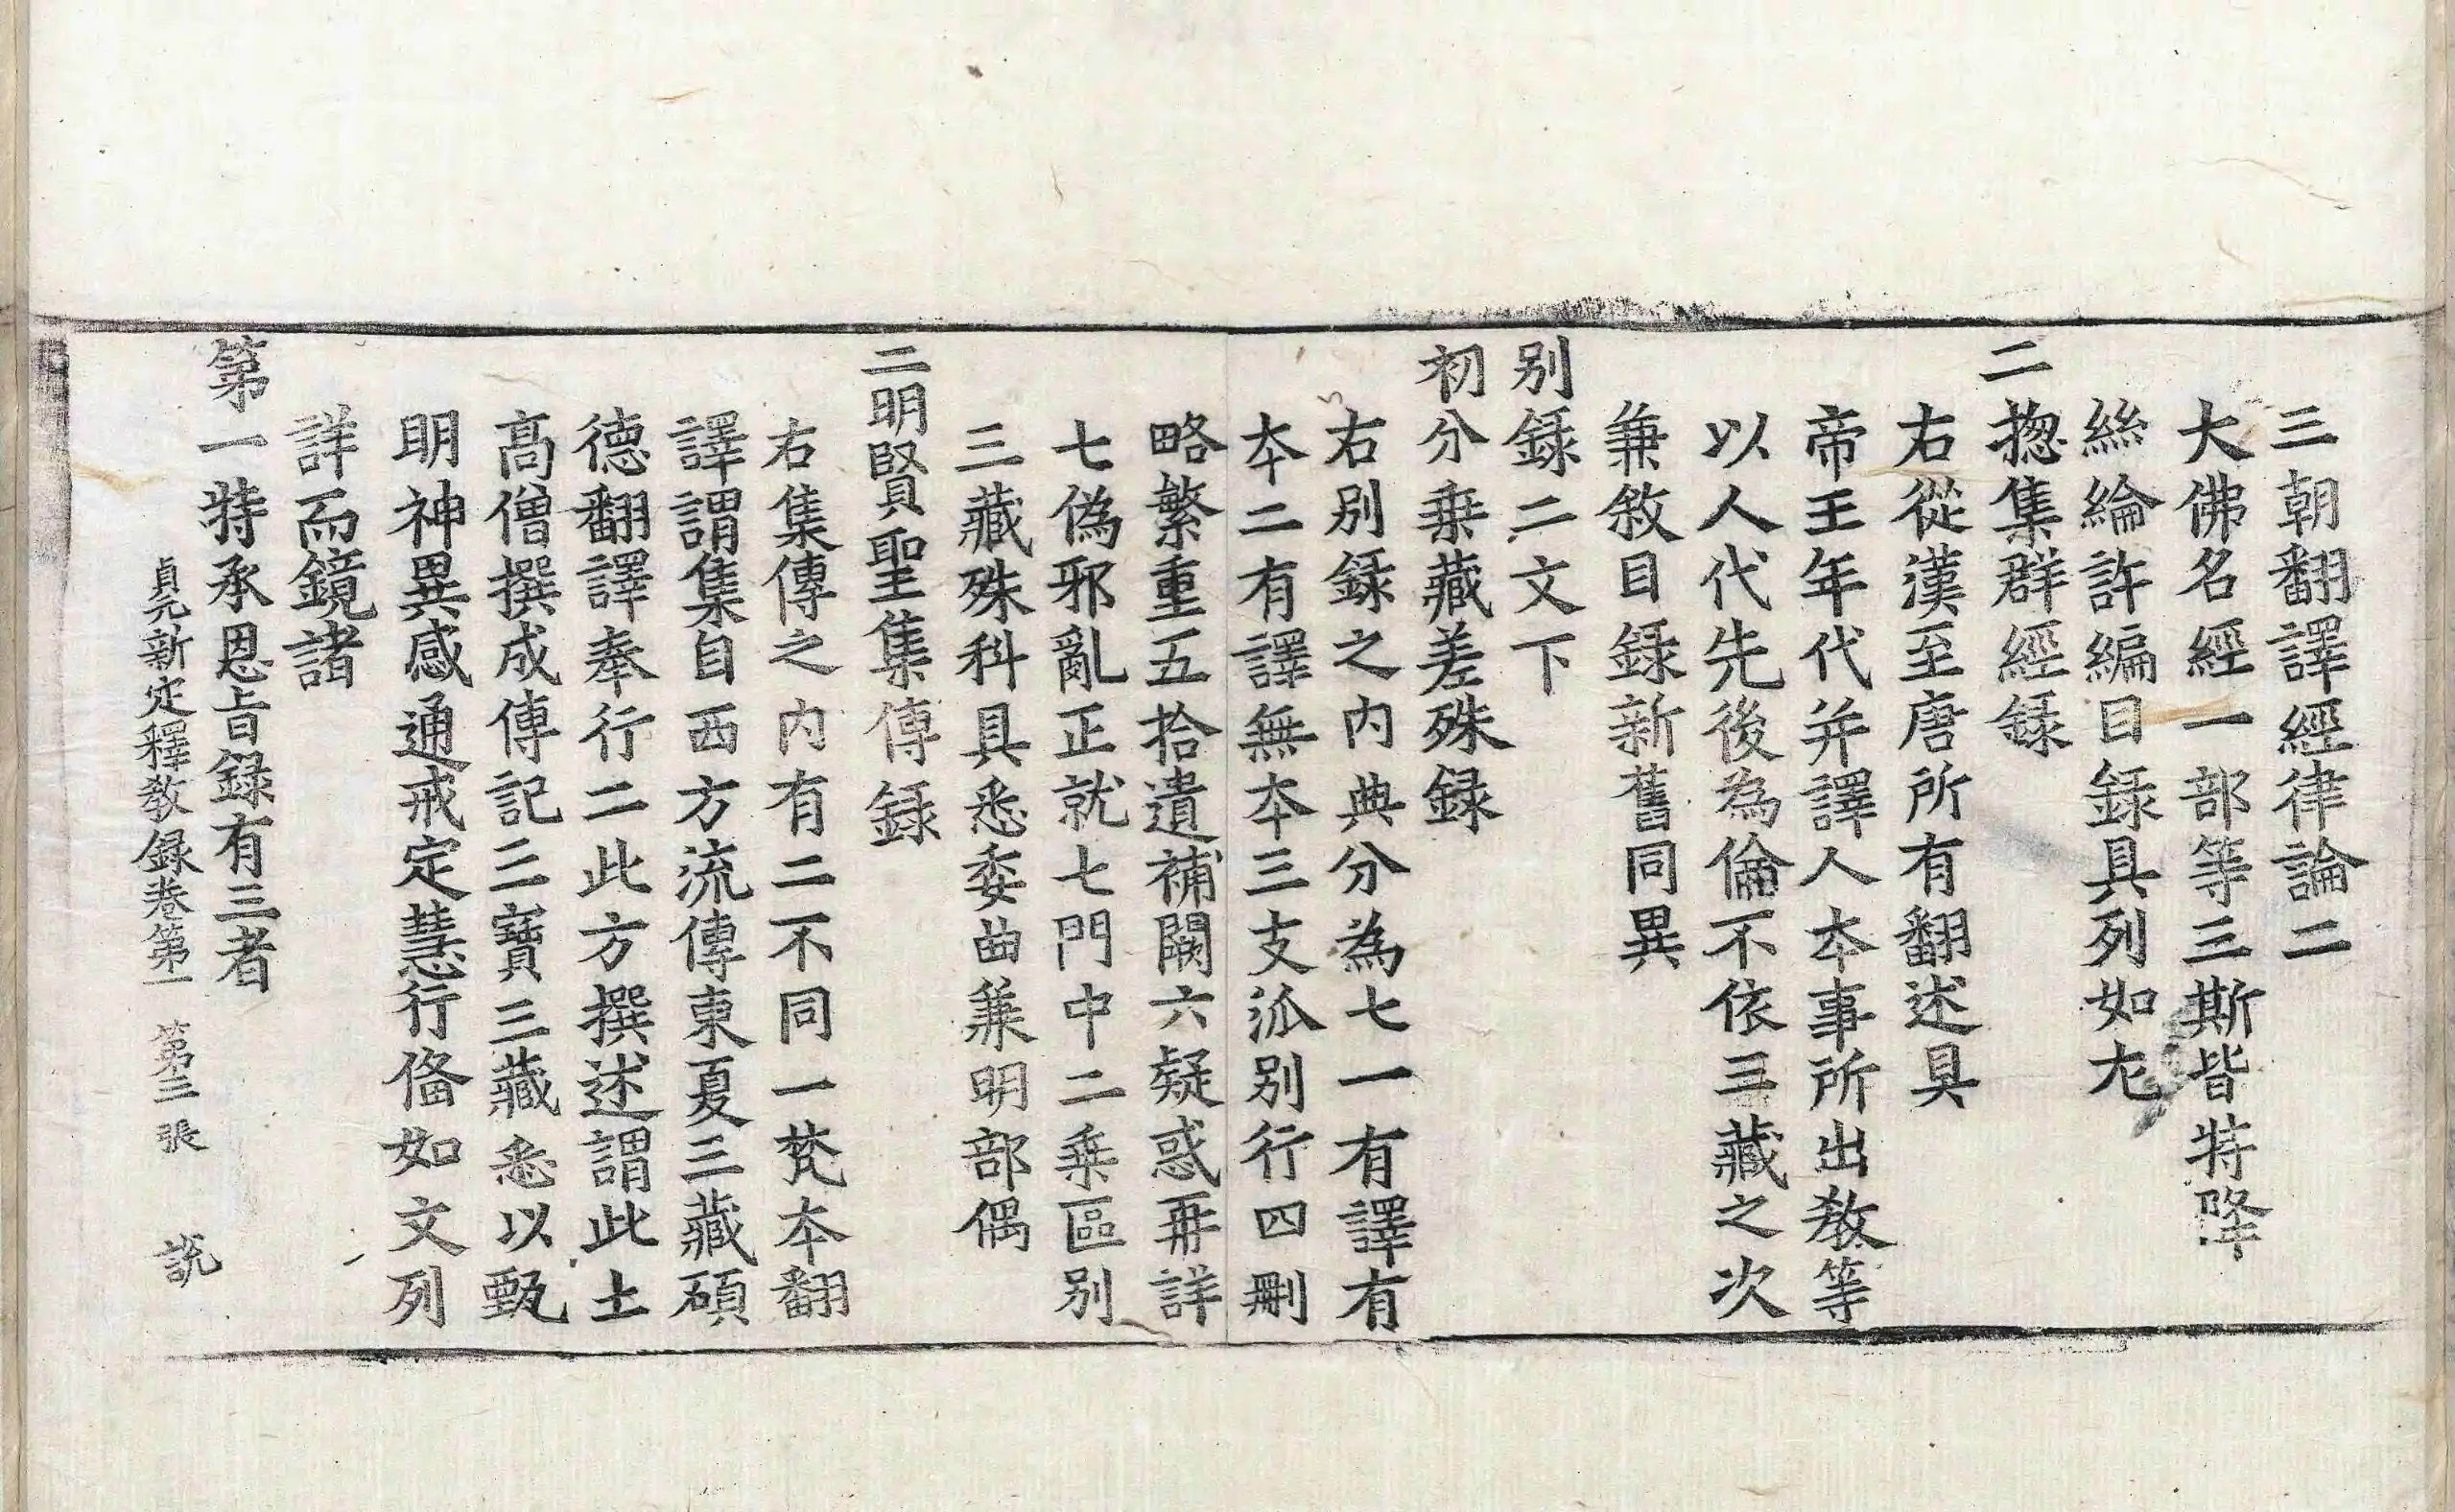 三朝翻譯經律論二
大佛名經一部等三斯皆特降
絲綸許編目録具列如尢
二揔集群經録
右從漢至唐所有翻述具
帝王年代并譯人本事所出教等
以人代先後為倫不依三藏之次
兼敘目録新舊同異
别録二文下
初分乗藏差殊録
右别録之内典分為七一有譯有
本二有譯無本三支泒别行四刪
略繁重五拾遺補闕六疑惑再詳
七偽邪亂正就七門中二乗區别
三藏殊科具悉委曲兼明部偶
二明賢聖集傳録
右集傳之内有二不同一梵本翻
譯謂集自西方流傳東夏三藏碩
德翻譯奉行二此方撰述謂此土
髙僧撰成傳記三寶三藏悉以甄
明神異感通戒定慧行俻如文列
詳而鏡諸
第一特承恩旨録有三者
貞元新定釋教録卷第一 第三張 説